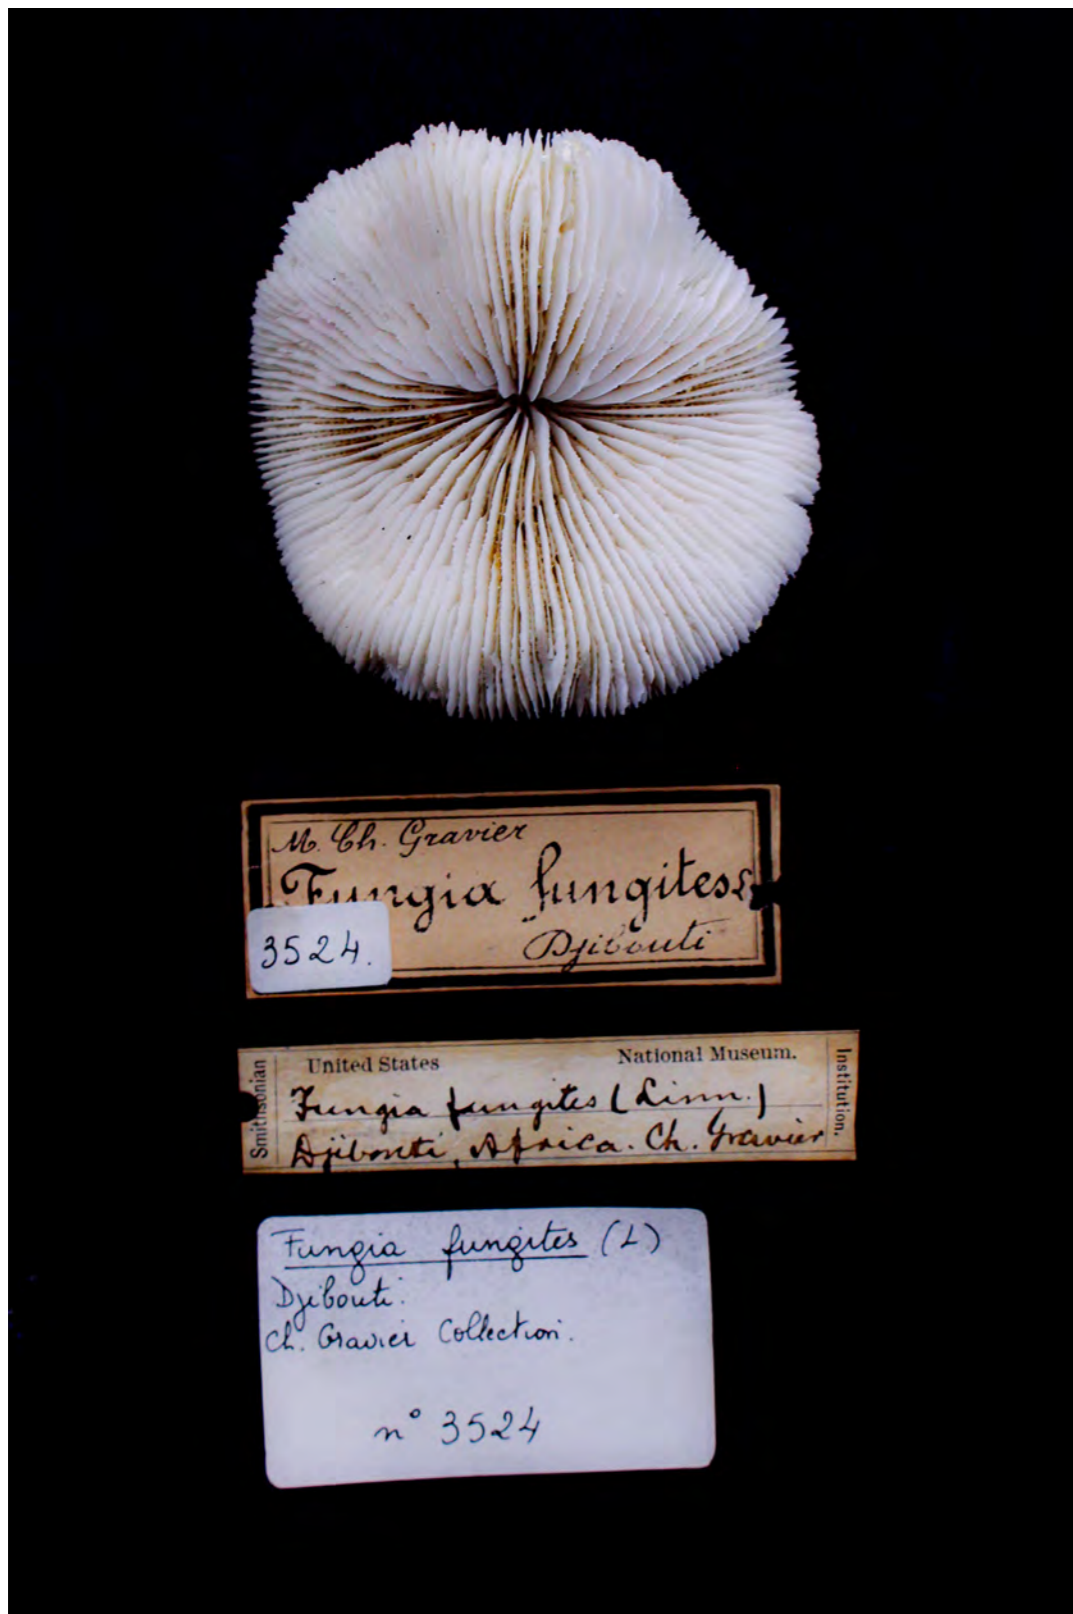 M. Ch. Gravier
Fungia fungites L
Djibouti
3524.
United States National Museum.
Smithsonian
Institution.
Fungia fungites (Linn.)
Djibouti, Africa. Ch. Gravier
Fungia fungites (L)
Djibouti.
Ch. Gravier Collection.
n° 3524